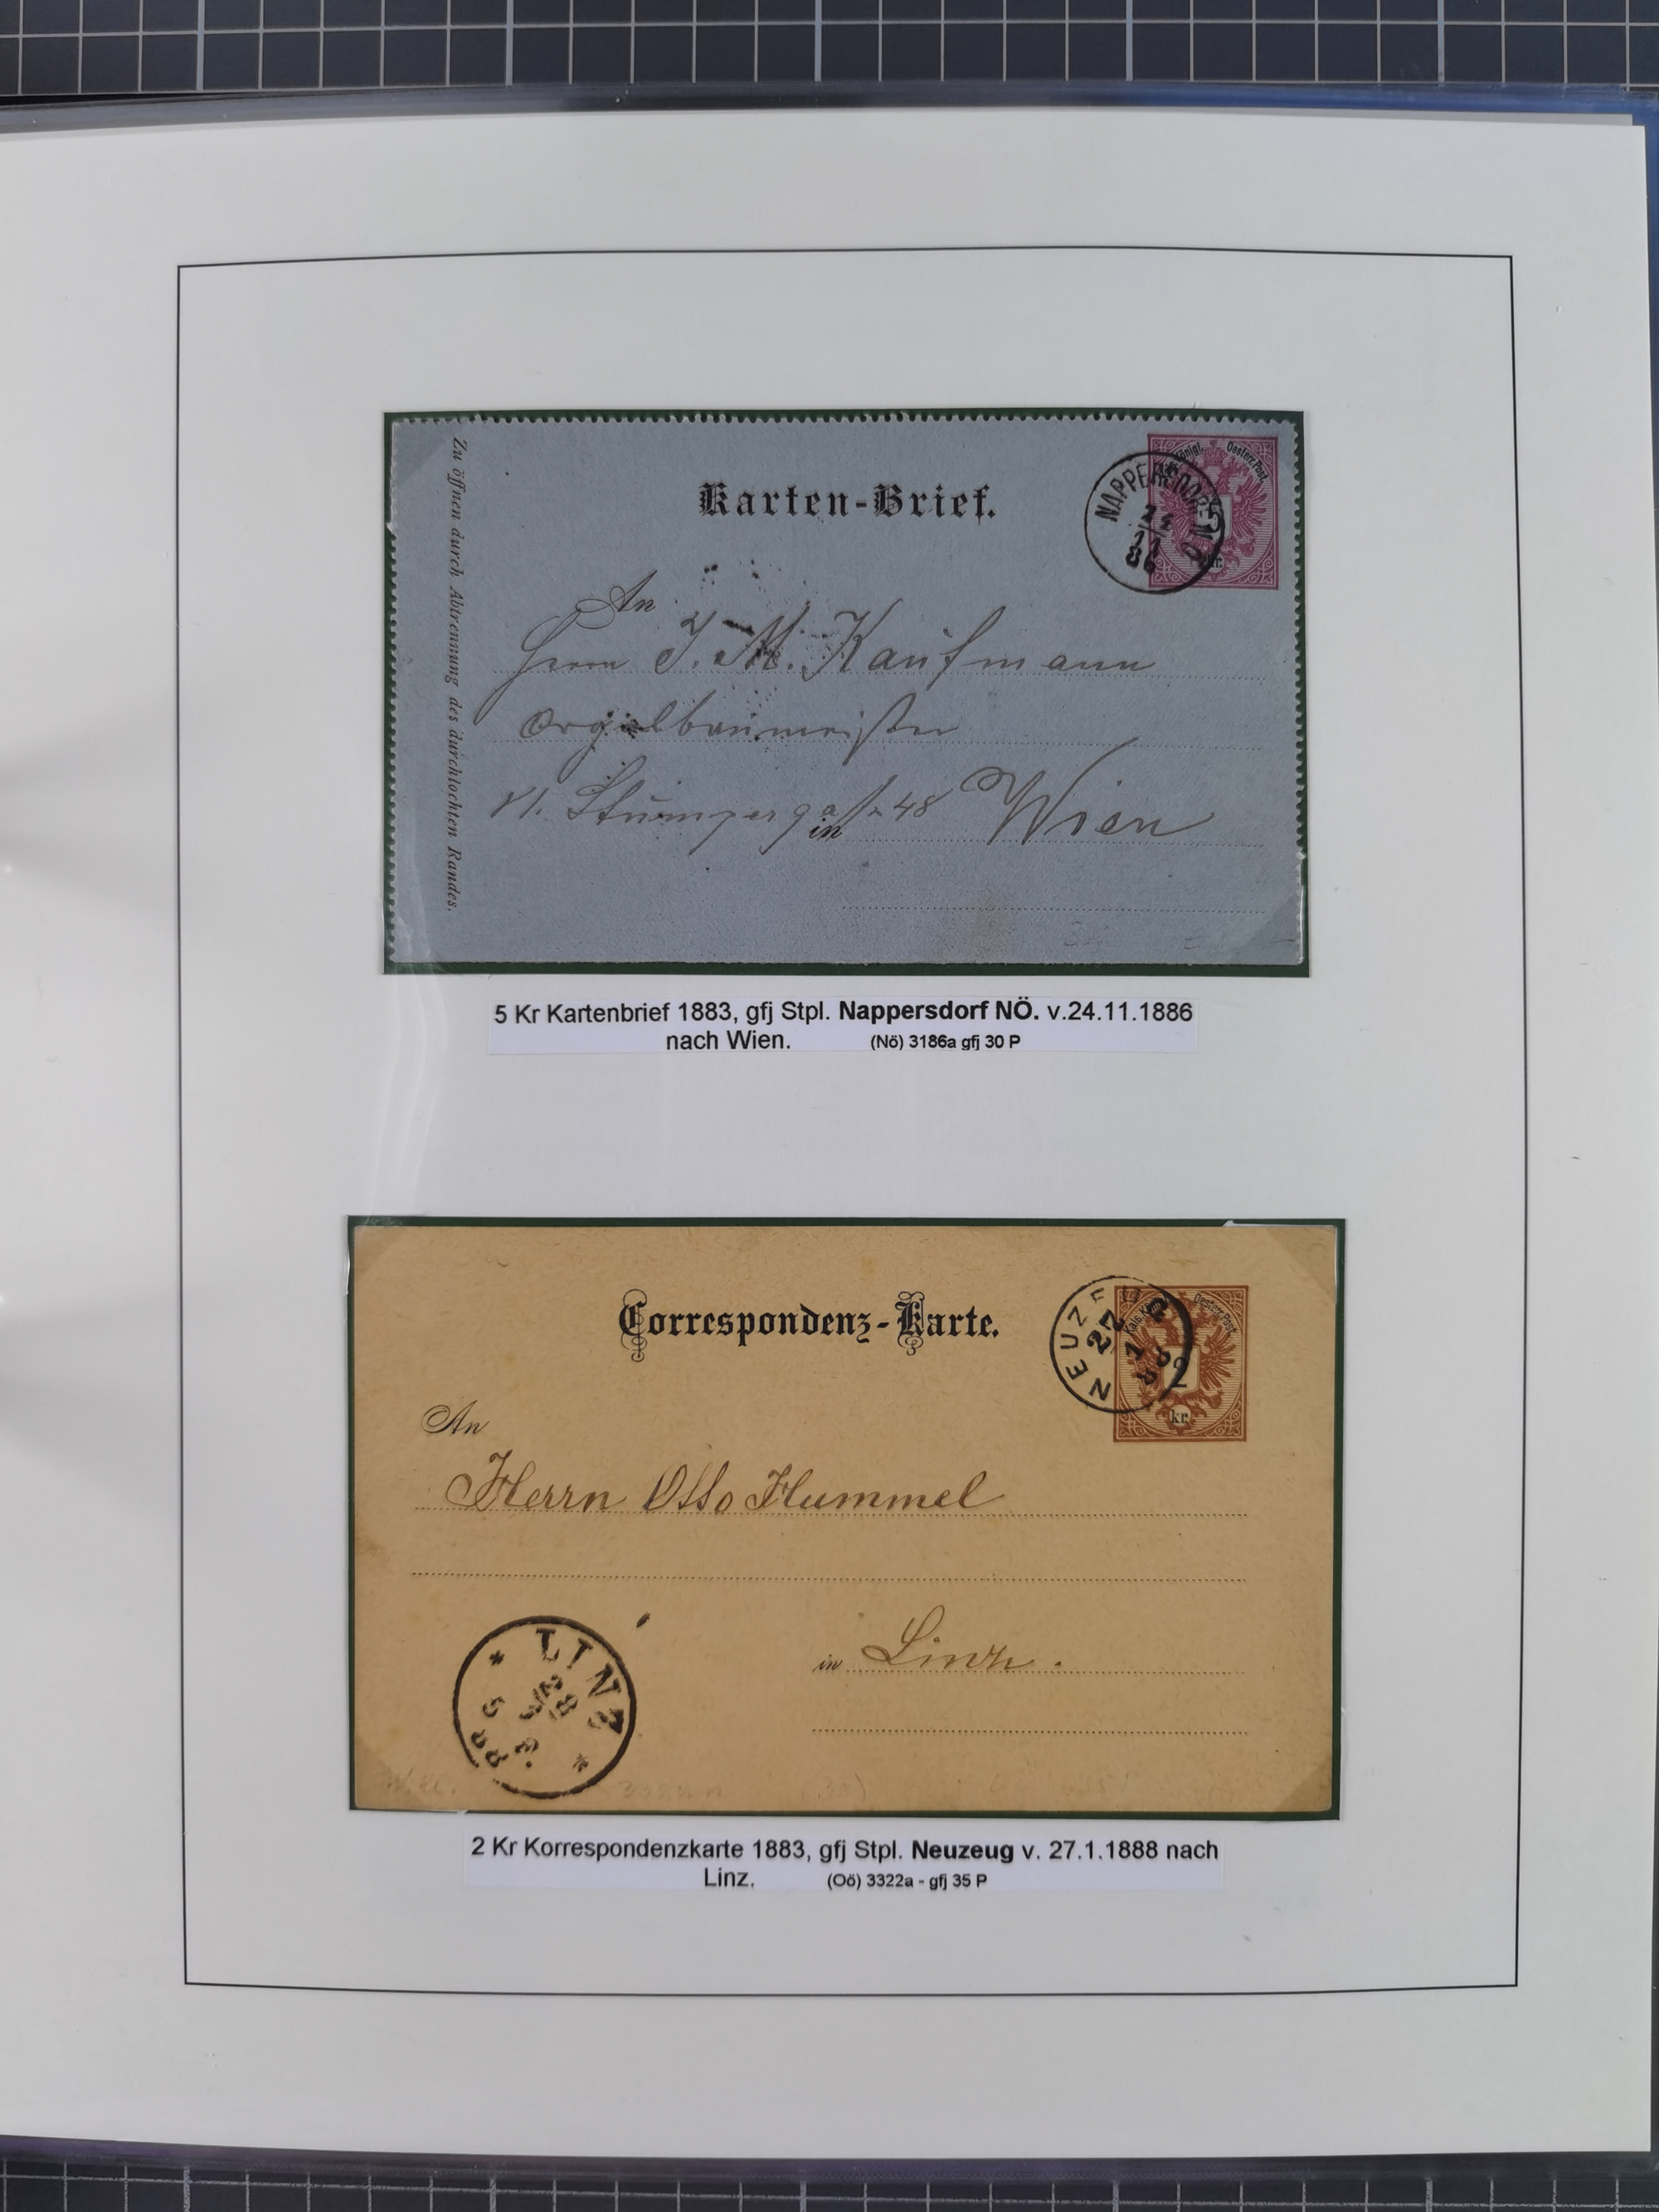 Zu öffnen durch Abtrennung des durchlochten Randes.
Karten-Brief.
Königl. Oesterr. Post.
NAPPERSDORF N.Ö.
24
11
86
5
kr.
An
Herrn J. M. Kaufmann
Orgelbaumeister
VI. Stumpergasse 48 Wien
in
5 Kr Kartenbrief 1883, gfj Stpl. Nappersdorf NÖ. v.24.11.1886
nach Wien. (Nö) 3186a gfj 30 P
Correspondenz-Karte.
Kais. Königl. Oesterr. Post.
NEUZEUG
27
1
88
2
kr
An
Herrn Otto Hummel
in Linz.
LINZ
5
88
2 Kr Korrespondenzkarte 1883, gfj Stpl. Neuzeug v. 27.1.1888 nach
Linz. (Oö) 3322a - gfj 35 P